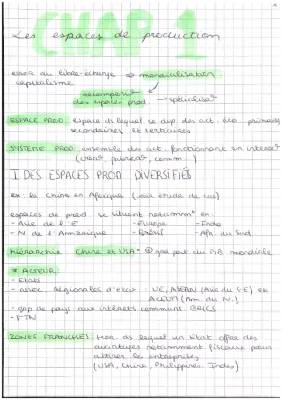 CHAP 1
Les espaces de production
essor du libre-échange ⇒ mondialisation
capitalisme
recomposit°
des espaces prod → spécialisat°
ESPACE PROD espace ds lequel se dvp des act. éco primaires
secondaires et tertiaires
SYSTEME PROD ensemble des act. fonctionnant en interact°
I DES ESPACES PROD DIVERSIFIÉS
ex: la Chine en Afrique (voir étude de cas)
espaces de prod se situent notamm^t en :
- Asie de l'E - Europe - Inde
- N de l'Amérique - Brésil - Afr. du Sud
hiérarchie Chine et USA = ⊕ gde part du PIB mondiale
* ACTEUR
- Etats
- assoc. régionales d'état : UE, ASEAN (Asie du SE) et
ACEUM (Am. du N.)
- gpe de pays aux intérêts communs BRICS
- FTN
ZONES FRANCHES ds lequel un état offre des
avantages notamment fiscaux pour
attirer les entreprises
(USA, Chine, Philippines, Inde)